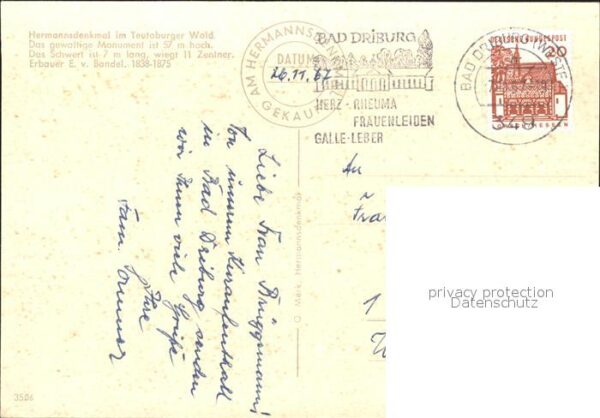 Hermannsdenkmal im Teutoburger Wald
Das gewaltige Monument ist 57 m hoch.
Das Schwert ist 7 m lang, wiegt 11 Zentner.
Erbauer E. v. Bandel. 1838-1875
AM HERMANNSDENKMAL
DATUM
26.11.67
GEKAUFT
BAD DRIBURG
HERZ - RHEUMA
FRAUENLEIDEN
GALLE-LEBER
BAD DRIBURG (WESTF)
DEUTSCHE BUNDESPOST
20
LORSCH/HESSEN
Liebe Frau Brüggemann!
Von unserem Kuraufenthalt
in Bad Driburg senden
wir Ihnen viele Grüße
Ihre
Fam.
An
Fra
1
O. Merk, Hermannsdenkmal
3506
privacy protection
Datenschutz